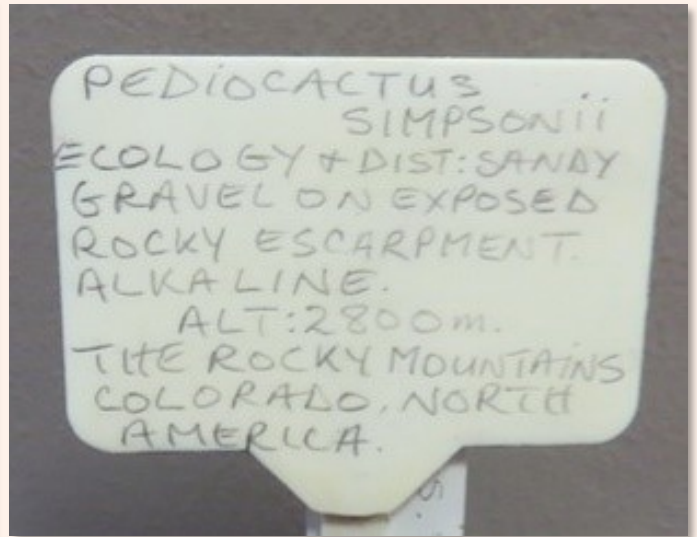 PEDIOCACTUS
SIMPSONII
ECOLOGY + DIST: SANDY
GRAVEL ON EXPOSED
ROCKY ESCARPMENT.
ALKALINE.
ALT: 2800m.
THE ROCKY MOUNTAINS
COLORADO, NORTH
AMERICA.